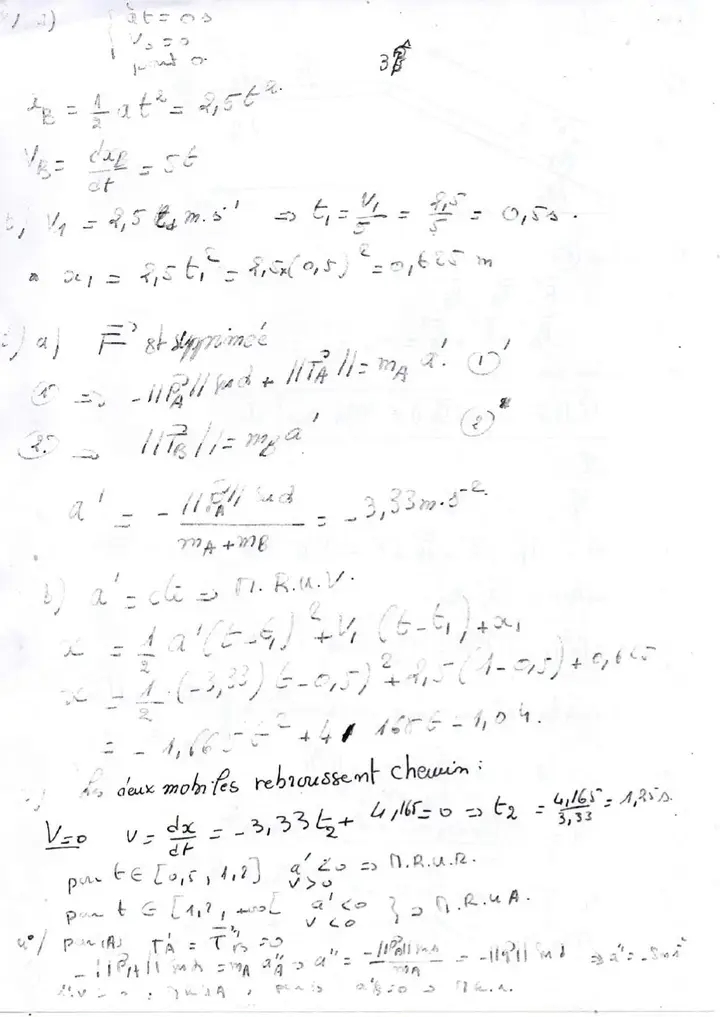 2)
à t = 0 s
V₀ = 0
point O
x_B = 1/2 a t² = 2,5 t²
V_B = dx_B/dt = 5t
V₁ = 2,5 m.s⁻¹ ⇒ t₁ = V₁/5 = 2,5/5 = 0,5 s.
x₁ = 2,5 t₁² = 2,5x(0,5)² = 0,625 m
a) F⃗ est supprimée
① ⇒ -||P⃗_A|| sin α + ||T⃗_A|| = m_A a'. ①'
② ⇒ ||T⃗_B|| = m_B a' ②'
a' = - ||P⃗_A|| sin α / m_A + m_B = -3,33 m.s⁻²
b) a' = cte ⇒ M.R.U.V.
x = 1/2 a'(t-t₁)² + V₁ (t-t₁) + x₁
x = 1/2 (-3,33)(t-0,5)² + 2,5(t-0,5) + 0,625
= -1,665 t² + 4,165 t - 1,04.
Les deux mobiles rebroussent chemin :
V=0 V = dx/dt = -3,33 t₂ + 4,165 = 0 ⇒ t₂ = 4,165/3,33 = 1,25 s.
pour t ∈ [0,5 , 1,2] a' < 0 V > 0 ⇒ M.R.U.R.
pour t ∈ [1,2, +∞[ a' < 0 V < 0 } ⇒ M.R.U.A.
4°/ pour (A) T⃗_A = T⃗_B = 0
-||P⃗_A|| sin α = m_A a''_A ⇒ a'' = -||P⃗_A|| sin α / m_A = -||g⃗|| sin α ⇒ a'' = -5 m.s⁻²